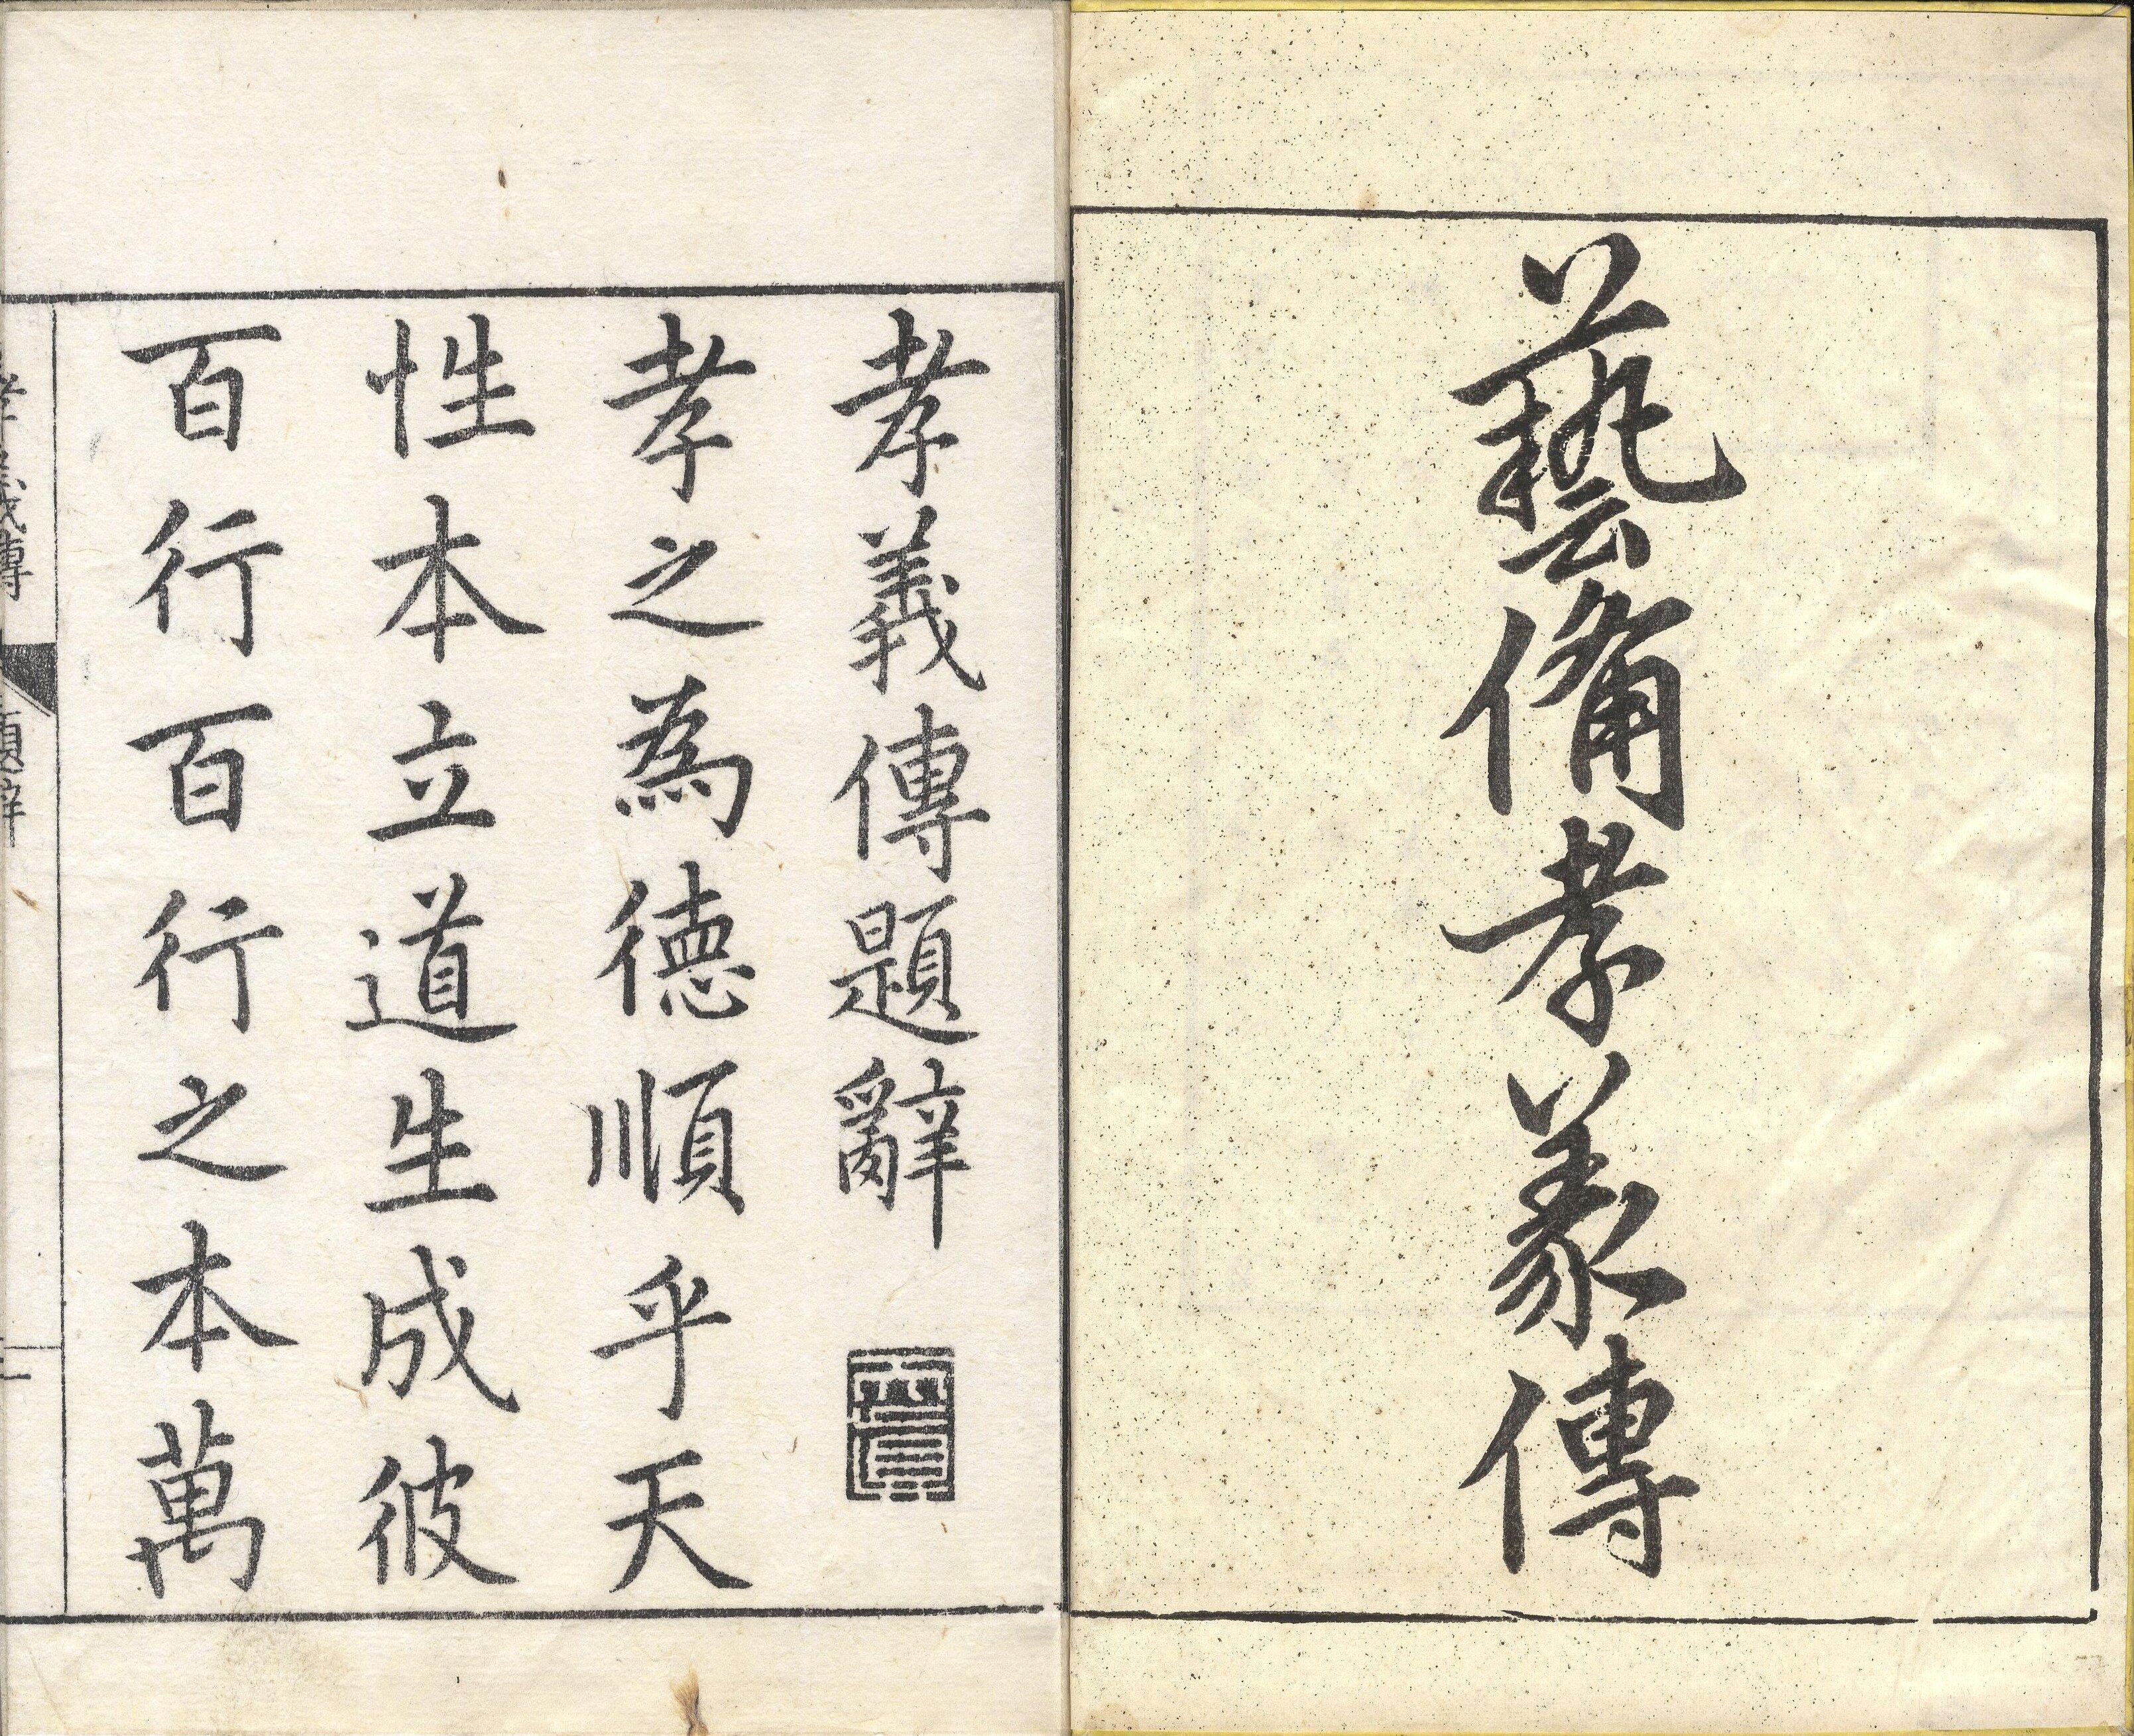 藝備孝義傳
孝義傳題辭
孝之為德順乎天
性本立道生成彼
百行百行之本萬
孝義傳 題辭